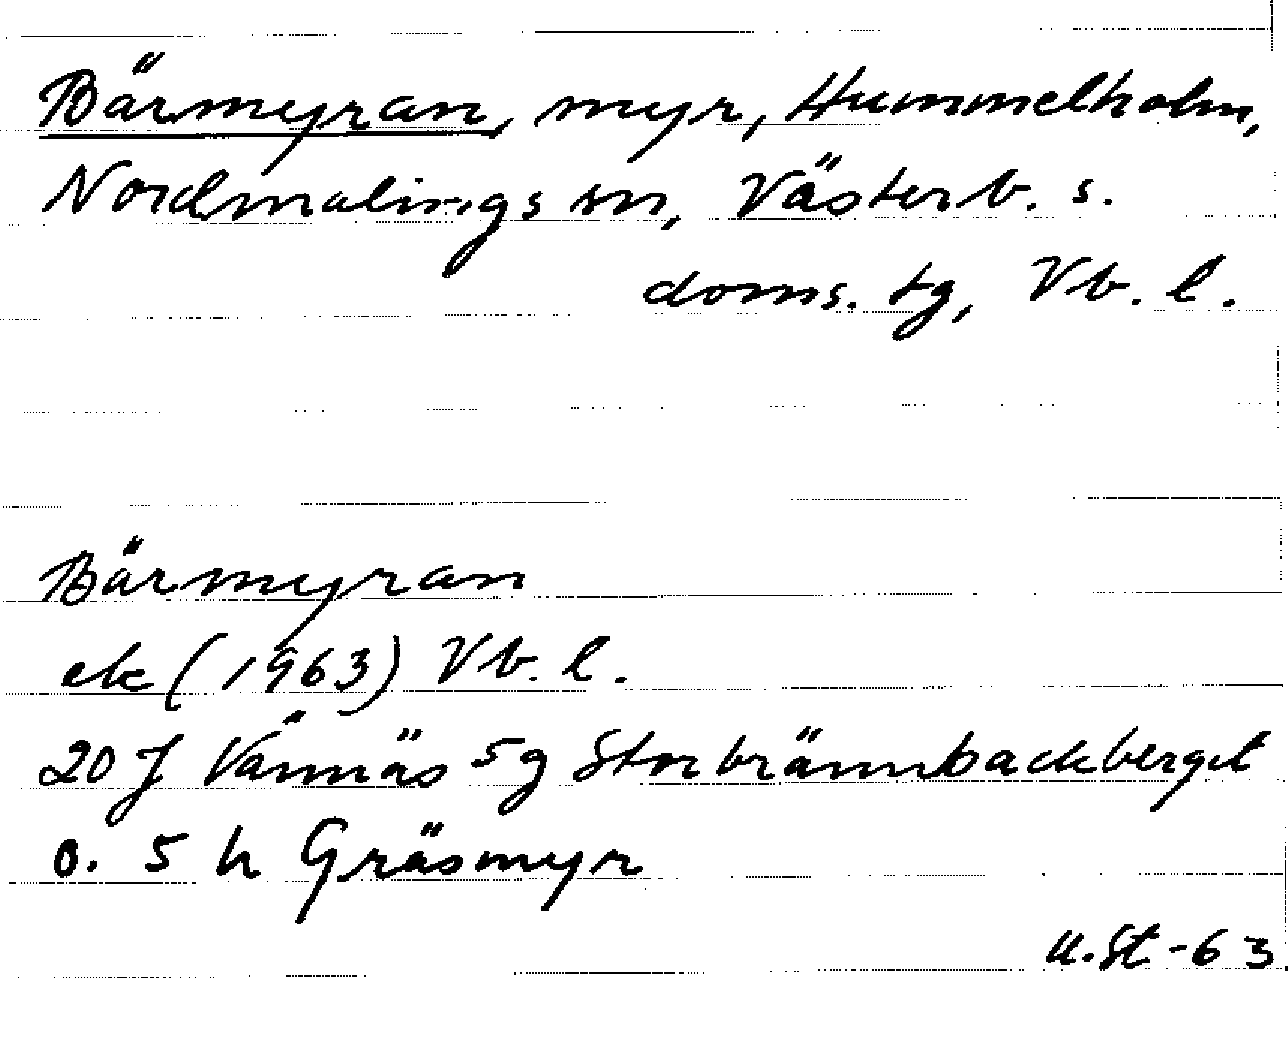 Bärmyran, myr, Hummelholm,
Nordmalings sn, Västerb. s.
doms. tg, Vb. l.
Bärmyran
ek (1963) Vb. l.
20 J Vännäs 5g Storbrännbackberget
o. 5 h Gräsmyr
U.St-63